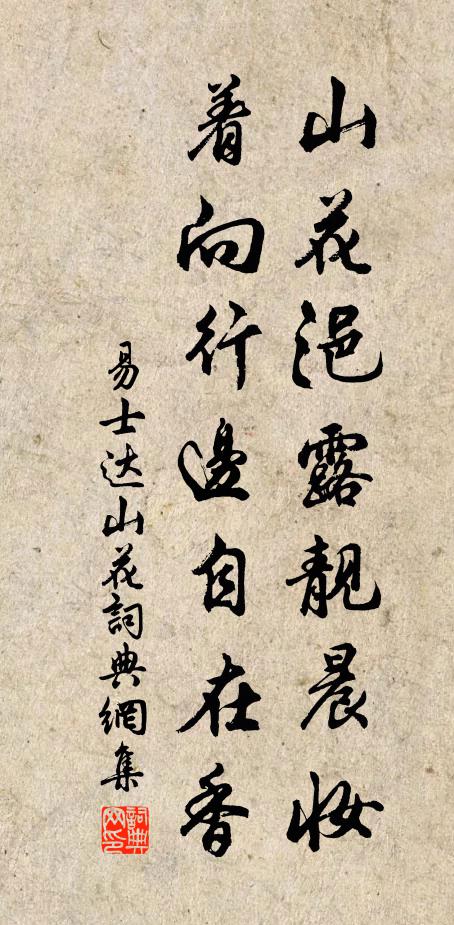 山花浥露靓晨妆
着向行邊自在香
易士达山花詞典網集
詞典网印